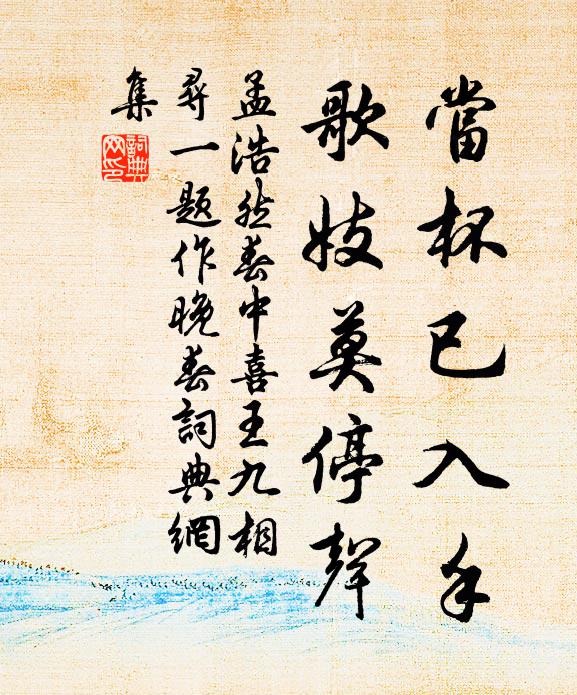 當杯已入手
歌妓莫停聲
孟浩然春中喜王九相
尋一題作晚春詞典網
集
詞典
网印